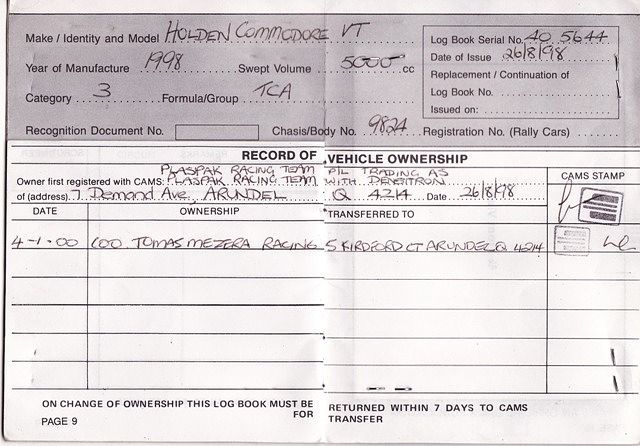 Make / Identity and Model HOLDEN COMMODORE VT
Log Book Serial No. 40 5644
Date of Issue 26/8/98
Year of Manufacture 1998 Swept Volume 5000 cc
Replacement / Continuation of
Category 3 Formula/Group TCA
Log Book No.
Issued on:
Recognition Document No. Chassis/Body No. 9824 Registration No. (Rally Cars)
RECORD OF VEHICLE OWNERSHIP
CAMS STAMP
PLASPAK RACING TEAM P/L TRADING AS
Owner first registered with CAMS: PLASPAK RACING TEAM WITH
of (address) 7 Demand Ave, ARUNDEL Q 4214 Date 26/8/98
DATE OWNERSHIP TRANSFERRED TO
4-1-00 TOMAS MEZERA RACING 5 KIRDFORD CT ARUNDEL Q 4214
ON CHANGE OF OWNERSHIP THIS LOG BOOK MUST BE RETURNED WITHIN 7 DAYS TO CAMS
FOR TRANSFER
PAGE 9